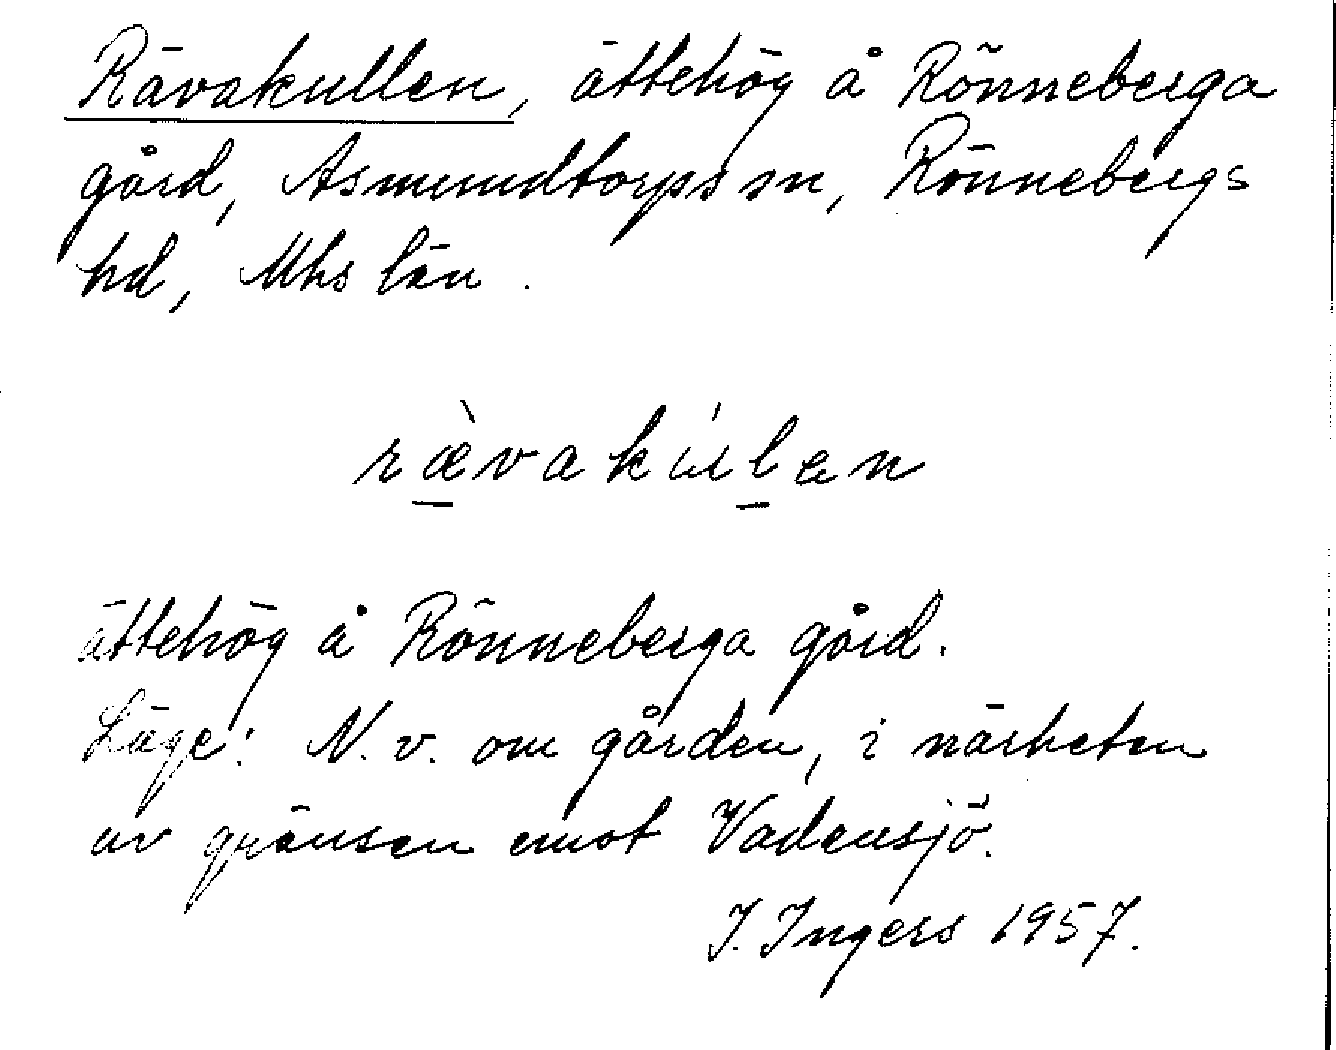 Rävakullen, ättehög å Rönneberga
gård, Asmundtorps sn, Rönnebergs
hd, Mhs län.
ræ̀vakúlen
ättehög å Rönneberga gård.
Läge: N.v. om gården, i närheten
av gränsen emot Vadensjö.
I. Ingers 1957.